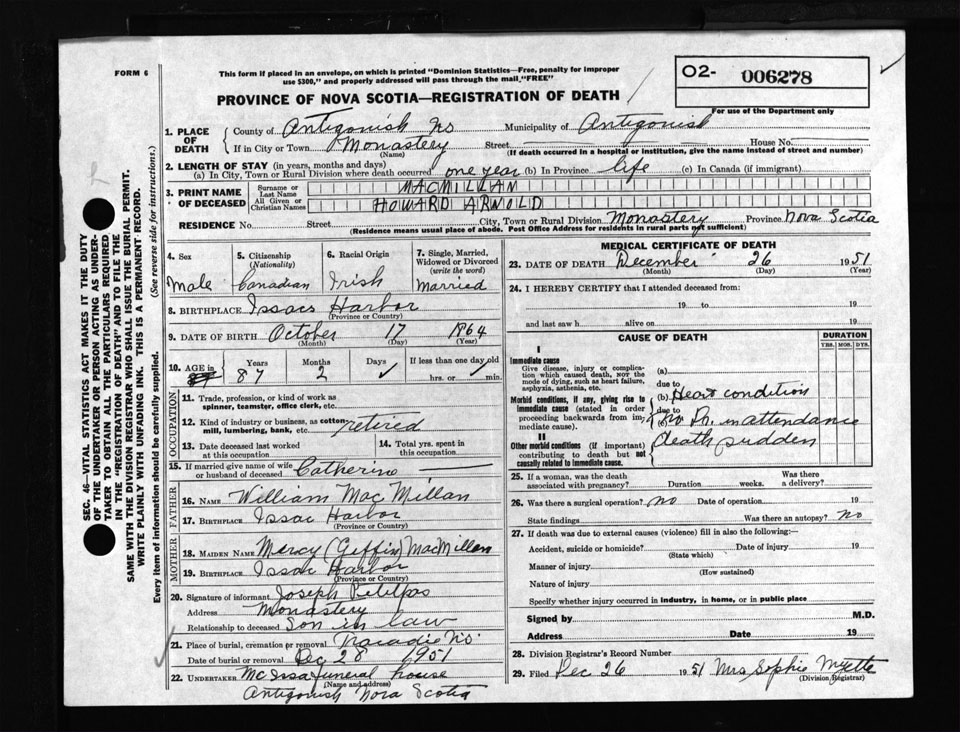 FORM 6
This form if placed in an envelope, on which is printed "Dominion Statistics—Free, penalty for improper
use $300," and properly addressed will pass through the mail "FREE"
02- 006278
For use of the Department only
PROVINCE OF NOVA SCOTIA—REGISTRATION OF DEATH
SEC. 46—VITAL STATISTICS ACT MAKES IT THE DUTY
OF THE UNDERTAKER OR PERSON ACTING AS UNDER-
TAKER TO OBTAIN ALL THE PARTICULARS REQUIRED
IN THE "REGISTRATION OF DEATH" AND TO FILE THE
SAME WITH THE DIVISION REGISTRAR WHO SHALL ISSUE THE BURIAL PERMIT.
WRITE PLAINLY WITH UNFADING INK. THIS IS A PERMANENT RECORD.
(See reverse side for instructions.)
Every item of information should be carefully supplied.
1. PLACE OF DEATH
County of Antigonish NS Municipality of Antigonish
If in City or Town Monastery Street House No.
(Name) (If death occurred in a hospital or institution, give the name instead of street and number)
2. LENGTH OF STAY (in years, months and days)
(a) In City, Town or Rural Division where death occurred one year (b) In Province life (c) In Canada (if immigrant)
3. PRINT NAME OF DECEASED
Surname or Last Name MACMILLAN
All Given or Christian Names HOWARD ARNOLD
RESIDENCE No. Street City, Town or Rural Division Monastery Province Nova Scotia
(Residence means usual place of abode. Post Office Address for residents in rural parts not sufficient)
4. Sex 5. Citizenship (Nationality) 6. Racial Origin 7. Single, Married, Widowed or Divorced (write the word)
Male Canadian Irish Married
8. BIRTHPLACE Issacs Harbor
(Province or Country)
9. DATE OF BIRTH October 17 1864
(Month) (Day) (Year)
10. AGE in Years Months Days If less than one day old
87 2 hrs. or min.
OCCUPATION
11. Trade, profession, or kind of work as
spinner, teamster, office clerk, etc.
12. Kind of industry or business, as cotton-
mill, lumbering, bank, etc. retired
13. Date deceased last worked
at this occupation
14. Total yrs. spent in
this occupation
15. If married give name of wife
or husband of deceased Catherine
FATHER
16. NAME William MacMillan
17. BIRTHPLACE Issac Harbor
(Province or Country)
MOTHER
18. MAIDEN NAME Mercy (Giffin) MacMillan
19. BIRTHPLACE Issac Harbor
(Province or Country)
20. Signature of informant Joseph Petitpas
Address Monastery
Relationship to deceased Son in law
21. Place of burial, cremation or removal Tracadie NS.
Date of burial or removal Dec 28 1951
22. UNDERTAKER McIssa funeral house
(Name and address)
Antigonish Nova Scotia
MEDICAL CERTIFICATE OF DEATH
23. DATE OF DEATH December 26 1951
(Month) (Day) (Year)
24. I HEREBY CERTIFY that I attended deceased from:
19 to 19
and last saw h alive on 19
CAUSE OF DEATH DURATION
YRS. MOS. DYS.
I
Immediate cause
Give disease, injury or complica-
tion which caused death, NOT the
mode of dying, such as heart failure,
asphyxia, asthenia, etc.
(a)
due to
(b) Heart condition
Morbid conditions, if any, giving rise to
immediate cause (stated in order
proceeding backwards from im-
mediate cause).
due to
No Dr. in attendance
II
Other morbid conditions (if important)
contributing to death but not
causally related to immediate cause.
death sudden
25. If a woman, was the death
associated with pregnancy? Duration weeks. Was there a delivery?
26. Was there a surgical operation? no Date of operation 19
State findings Was there an autopsy? No
27. If death was due to external causes (violence) fill in also the following:—
Accident, suicide or homicide? Date of injury 19
(State which)
Manner of injury
(How sustained)
Nature of injury
Specify whether injury occurred in industry, in home, or in public place
Signed by M.D.
Address Date 19
28. Division Registrar's Record Number
29. Filed Dec 26 1951 Mrs Sophie Myette
(Division Registrar)